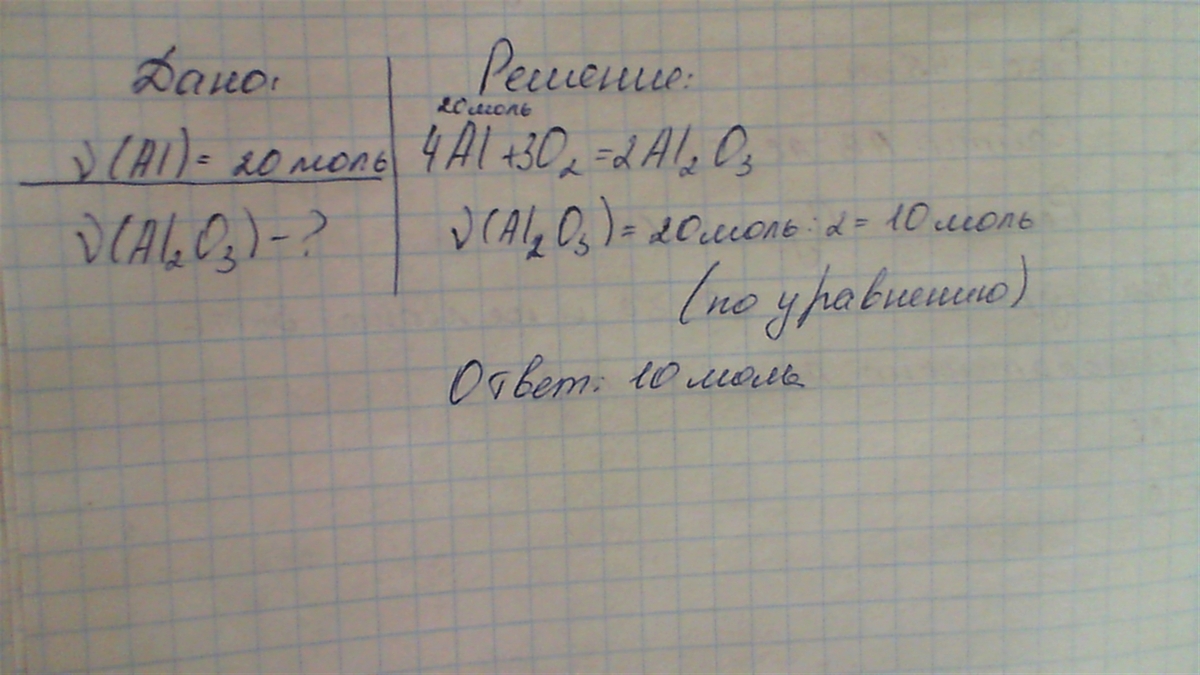 Дано:
ν(Al) = 20 моль
ν(Al₂O₃) - ?
Решение:
20 моль
4Al + 3O₂ = 2Al₂O₃
ν(Al₂O₃) = 20 моль : 2 = 10 моль
(по уравнению)
Ответ: 10 моль